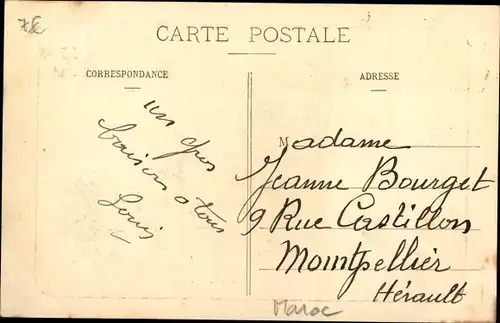 CARTE POSTALE
CORRESPONDANCE
un gros
baiser a tous
Louis
ADRESSE
Madame
Jeanne Bourget
9 Rue Castillon
Montpellier
Hérault
Maroc